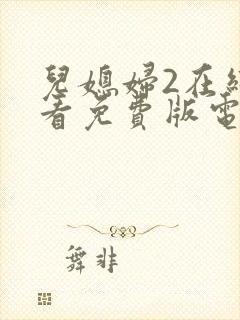 兒媳婦2在線
看免費版電
舞非